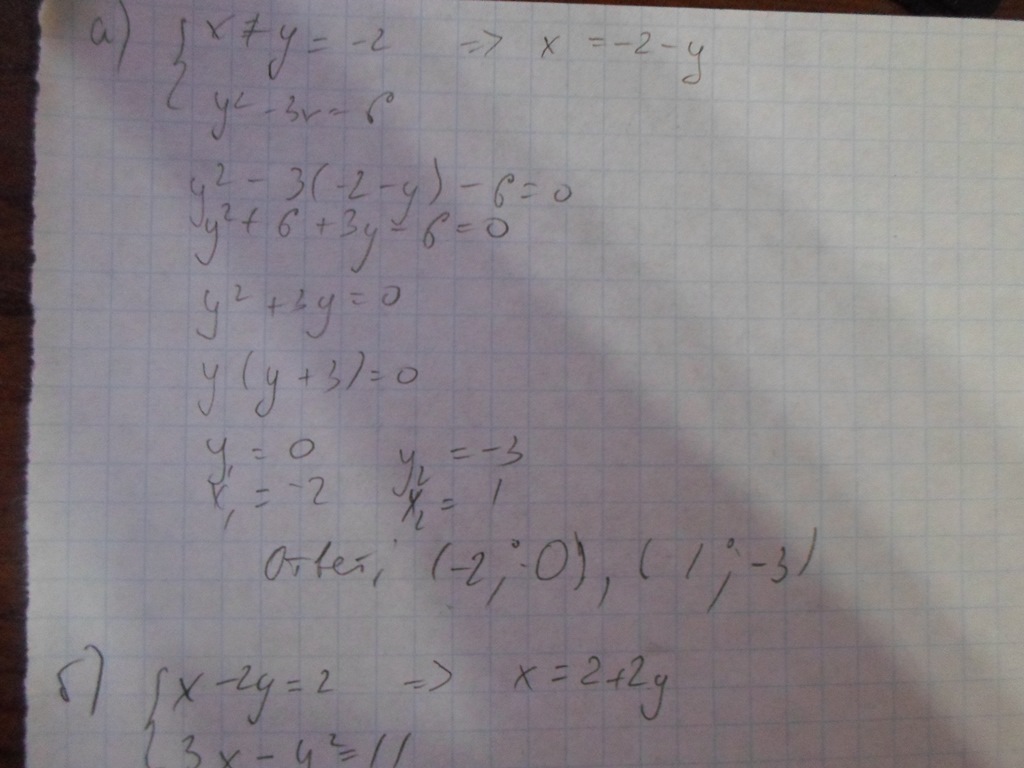 а) { x + y = -2 => x = -2 - y
y² - 3x = 6
y² - 3(-2 - y) - 6 = 0
y² + 6 + 3y - 6 = 0
y² + 3y = 0
y (y + 3) = 0
y₁ = 0 y₂ = -3
x₁ = -2 x₂ = 1
Ответ: (-2; 0), (1; -3)
б) { x - 2y = 2 => x = 2 + 2y
3x - y² = 11